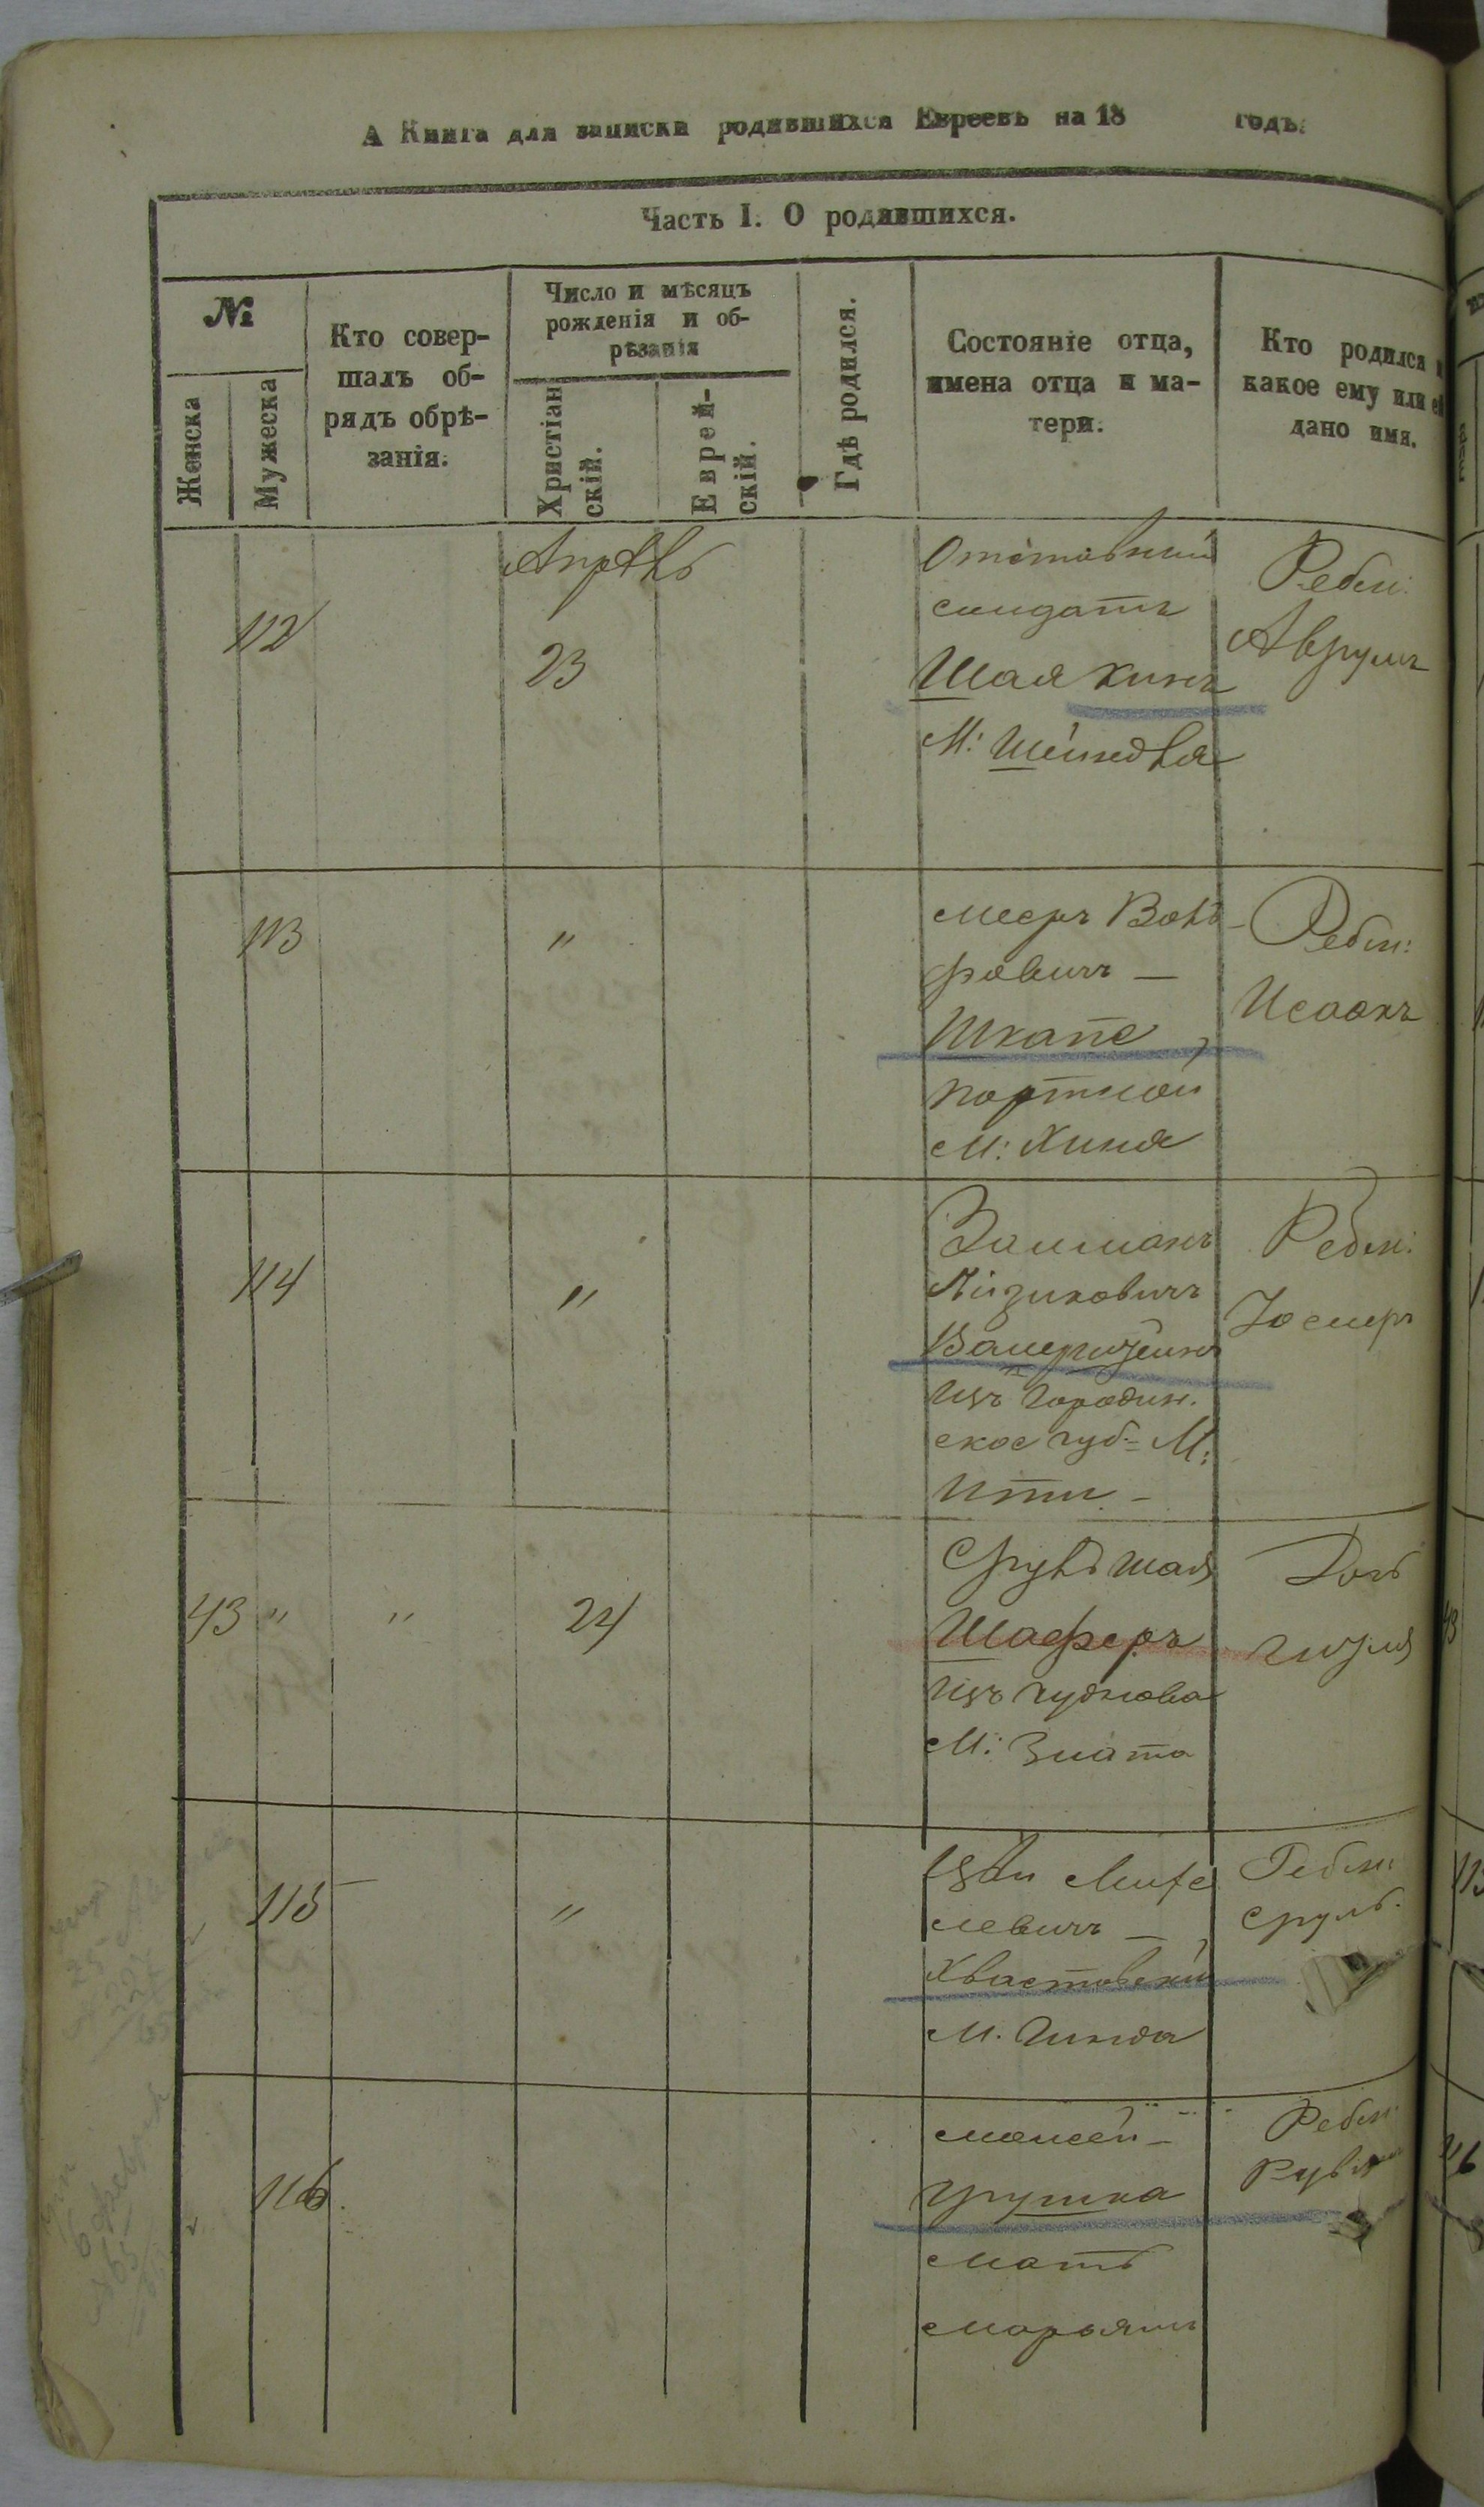 А Книга для записки родившихся Евреевъ на 18 годъ.
Часть I. О родившихся.
№
Женска
Мужеска
Кто совер-
шалъ об-
рядъ обрѣ-
занія.
Число и мѣсяцъ
рожденія и об-
рѣзанія
Христіан
скій.
Еврей-
скій.
Гдѣ родился.
Состояніе отца,
имена отца и ма-
тери.
Кто родился
какое ему или
дано имя.
Апрѣль
112
23
Отставный
солдатъ
Шая Кинъ
М: Шейндля
Ребен:
Аврумъ
113
"
Мееръ Воль-
фовичъ —
Шкапе,
портной
М: Хиня
Ребен:
Исаакъ
114
"
Залманъ
Айзиковичъ
изъ Гродин.
ское губ= М:
Ити –
Ребен:
43 " " 24
Сруль Шая
Шаферъ
изъ Чуднова
М: Злата
Дочь
115 — "
левичъ —
Хвастовскій
М. Гинда
Ребен:
Сруль.
116.
Моисей –
Грушка
Мать
Марьямъ
Ребен